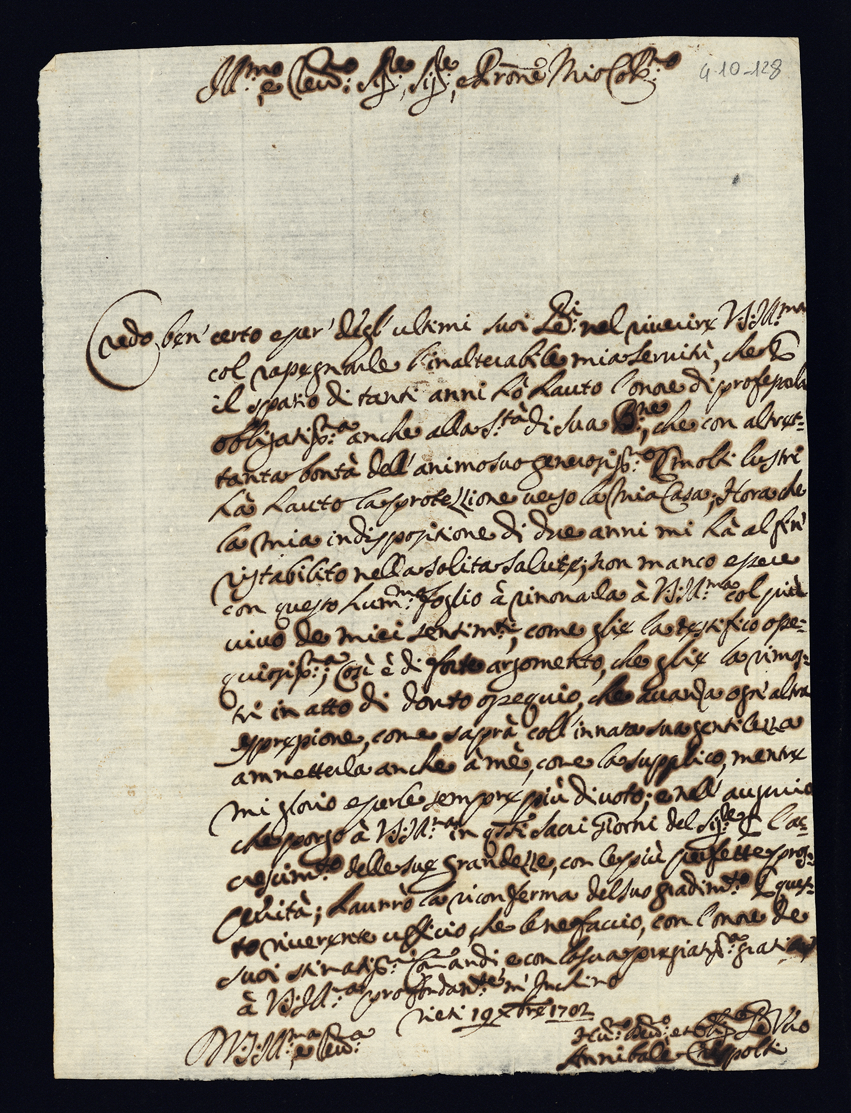 Ill.mo e Rev.mo Sig.re Sig.re, e Prone Mio Col.mo
4-10-128
Credo ben' certo esser' degl' ultimi suoi Se.ri nel riverire V.S.Ill.ma
col rapegnarle l'inalterabile mia servitù, che P
il spatio di tanti anni hò hauto l'onore di professarla
obligatiss.ma anche alla S.tà di sua B.ne, che con altret-
tanta bontà dell'animo suo generosiss.o P molti lustri
hà hauto la protezzione verso la mia Casa; Hora che
la mia indispositione di due anni mi hà al fin'
ristabilito nella solita salute; non manco essere
con questo hum.mo foglio à rinovarla à V.S.Ill.ma col più
vivo de miei sentim.ti, come glie la testifico osse-
quiosiss.ma; Così è di forte argomento, che glie la rimos-
tri in atto di dovuto ossequio, che avanza ogn'altra
espressione, come saprà coll'innata sua gentilezza
amnetterla anche à mè, come la supplico, mentre
mi glorio esserle sempre più divoto; e nell'augurio
che porgo à V.S.Ill.ma in q.sti sacri Giorni del Sig.re P l'ac-
crescim.to delle sue grandezze, con le più perfette pros-
perità; haverò la riconferma del suo gradim.to P ques-
to riverente ufficio, che le ne faccio, con l'onore de
suoi stimatiss.mi Comandi e con la sua pregiatiss.ma gratia
à V.S.Ill.ma profondam.te m' Inchino
Rieti 19 Xbre 1702
D V.S.Ill.ma e Rev.ma
Hu.mo Dev.mo et Obl.mo Se.re Vero
Annibale Crispolti